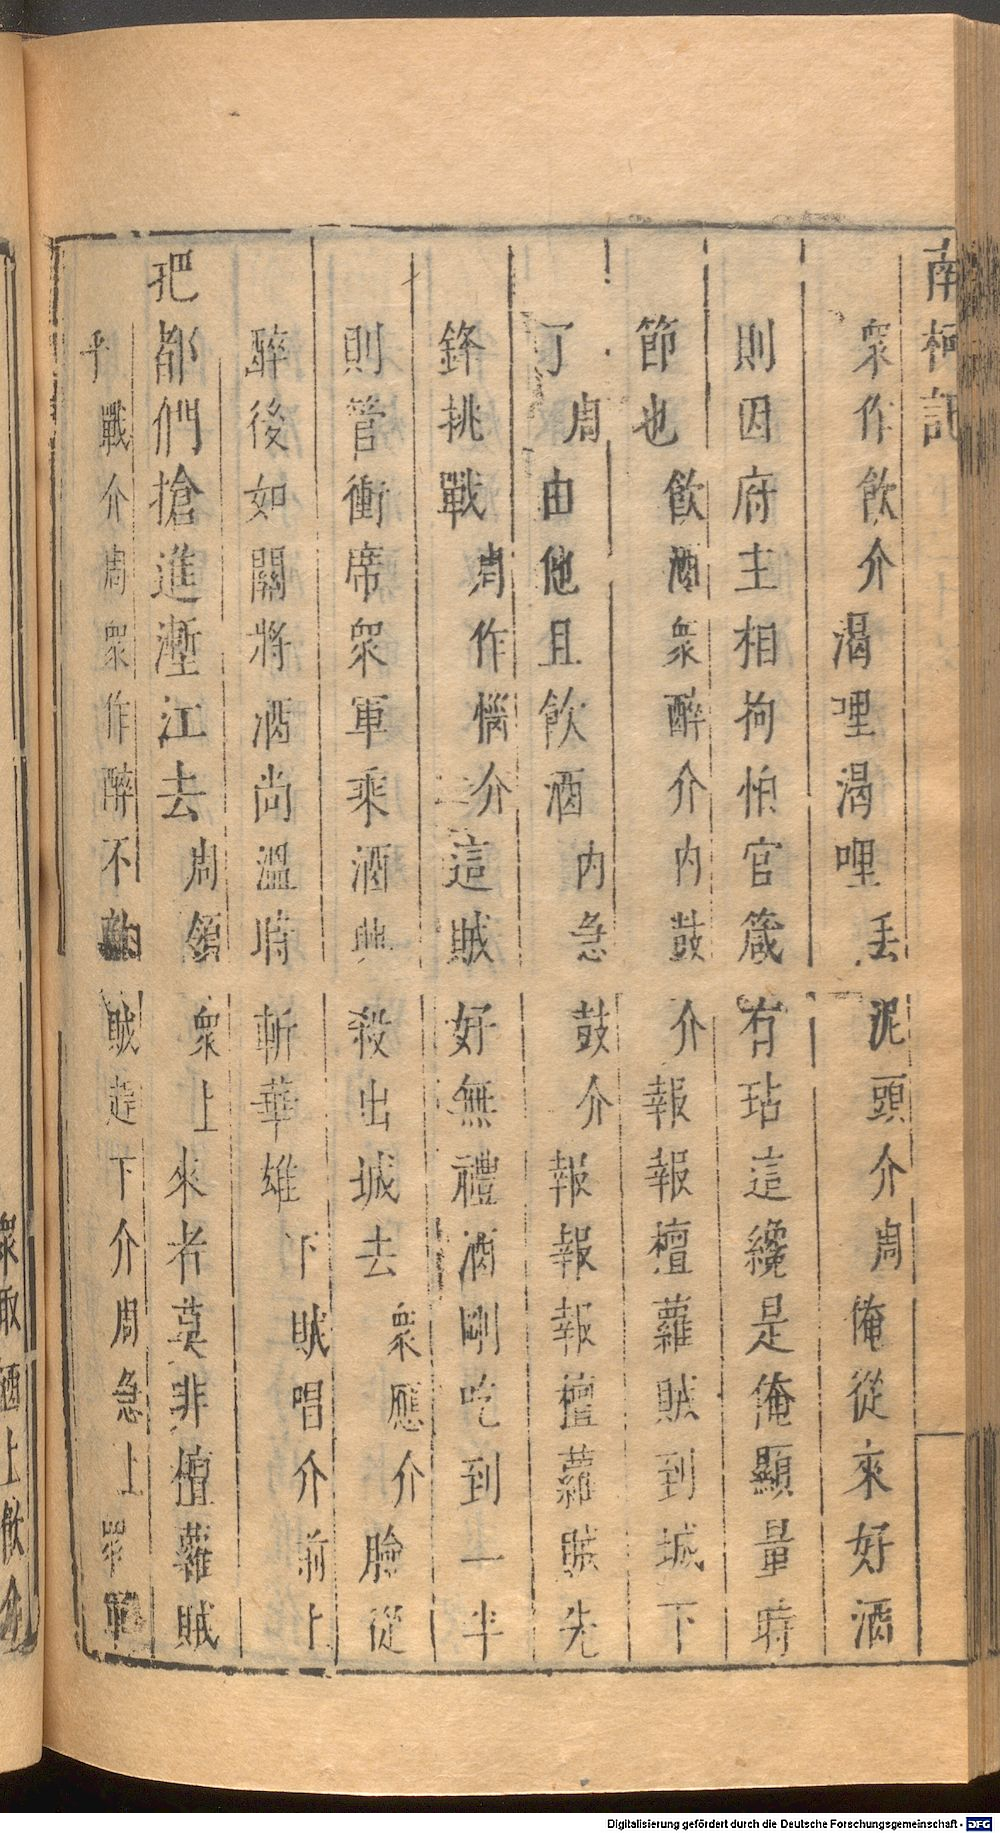 南柯記
衆作飲介渴哩渴哩丢泥頭介周俺從來好酒
則因府主相拘怕官箴有玷這纔是俺顯量時
節也飲酒衆醉介內鼓介報報檀蘿賊到城下
了周由他且飲酒內急鼓介報報報檀蘿賊先
鋒挑戰周作惱介這賊好無禮酒剛吃到一半
則管衝席衆軍乘酒興殺出城去衆應介臉從
醉後如關將酒尚溫時斬華雄下賊唱介前上
把都們搶進壍江去周領衆上來者莫非檀蘿賊
乎戰介周衆作醉不敵賊趕下介周急上衆軍
衆取酒上飲介
Digitalisierung gefördert durch die Deutsche Forschungsgemeinschaft - DFG